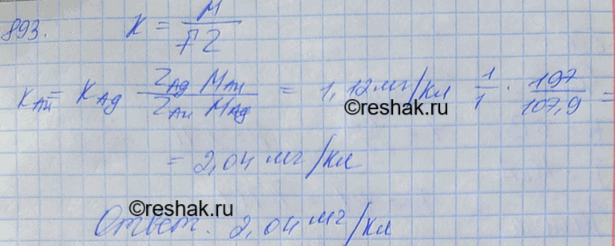 893. K = M / FZ
K_Au = K_Ag Z_Ag M_Au / Z_Au M_Ag = 1,12 мг/кл 1/1 · 197/107,9 =
©reshak.ru
= 2,04 мг/кл
©reshak.ru
Ответ: 2,04 мг/кл